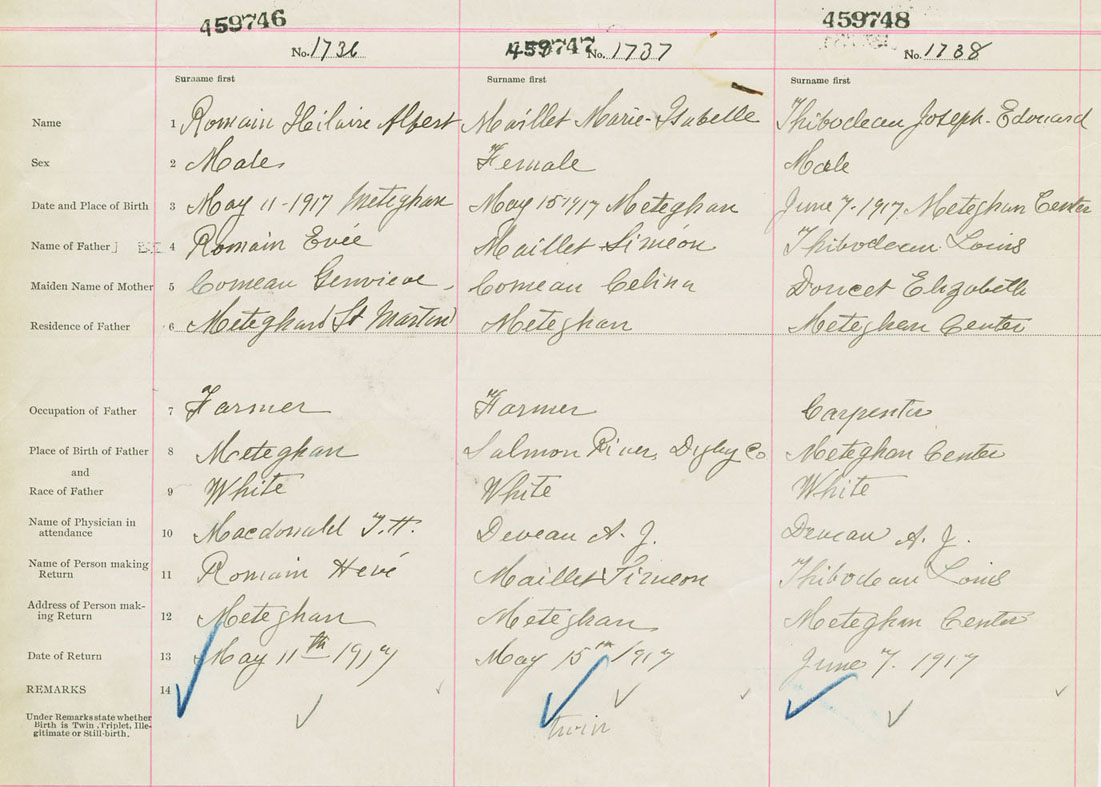 459746 459747 459748
No. 1736 No. 1737 No. 1738
Surname first Surname first Surname first
Name 1 Romain Hilaire Albert Maillet Marie-Isabelle Thibodeau Joseph-Edouard
Sex 2 Male Female Male
Date and Place of Birth 3 May 11-1917 Meteghan May 15 1917 Meteghan June 7. 1917. Meteghan Center
Name of Father 4 Romain Evée Maillet Siméon Thibodeau Louis
Maiden Name of Mother 5 Comeau Genvieve Comeau Celina Doucet Elizabeth
Residence of Father 6 Meteghan (St Martin) Meteghan Meteghan Center
Occupation of Father 7 Farmer Farmer Carpenter
Place of Birth of Father 8 Meteghan Salmon River, Digby Co Meteghan Center
and
Race of Father 9 White White White
Name of Physician in
attendance 10 Macdonald T.H. Deveau A. J. Deveau A. J.
Name of Person making
Return 11 Romain Hevé Maillet Simeon Thibodeau Louis
Address of Person mak-
ing Return 12 Meteghan Meteghan Meteghan Center
Date of Return 13 May 11th 1917 May 15th 1917 June 7. 1917
REMARKS 14
Under Remarks state whether
Birth is Twin, Triplet, Ille-
gitimate or Still-birth. twin